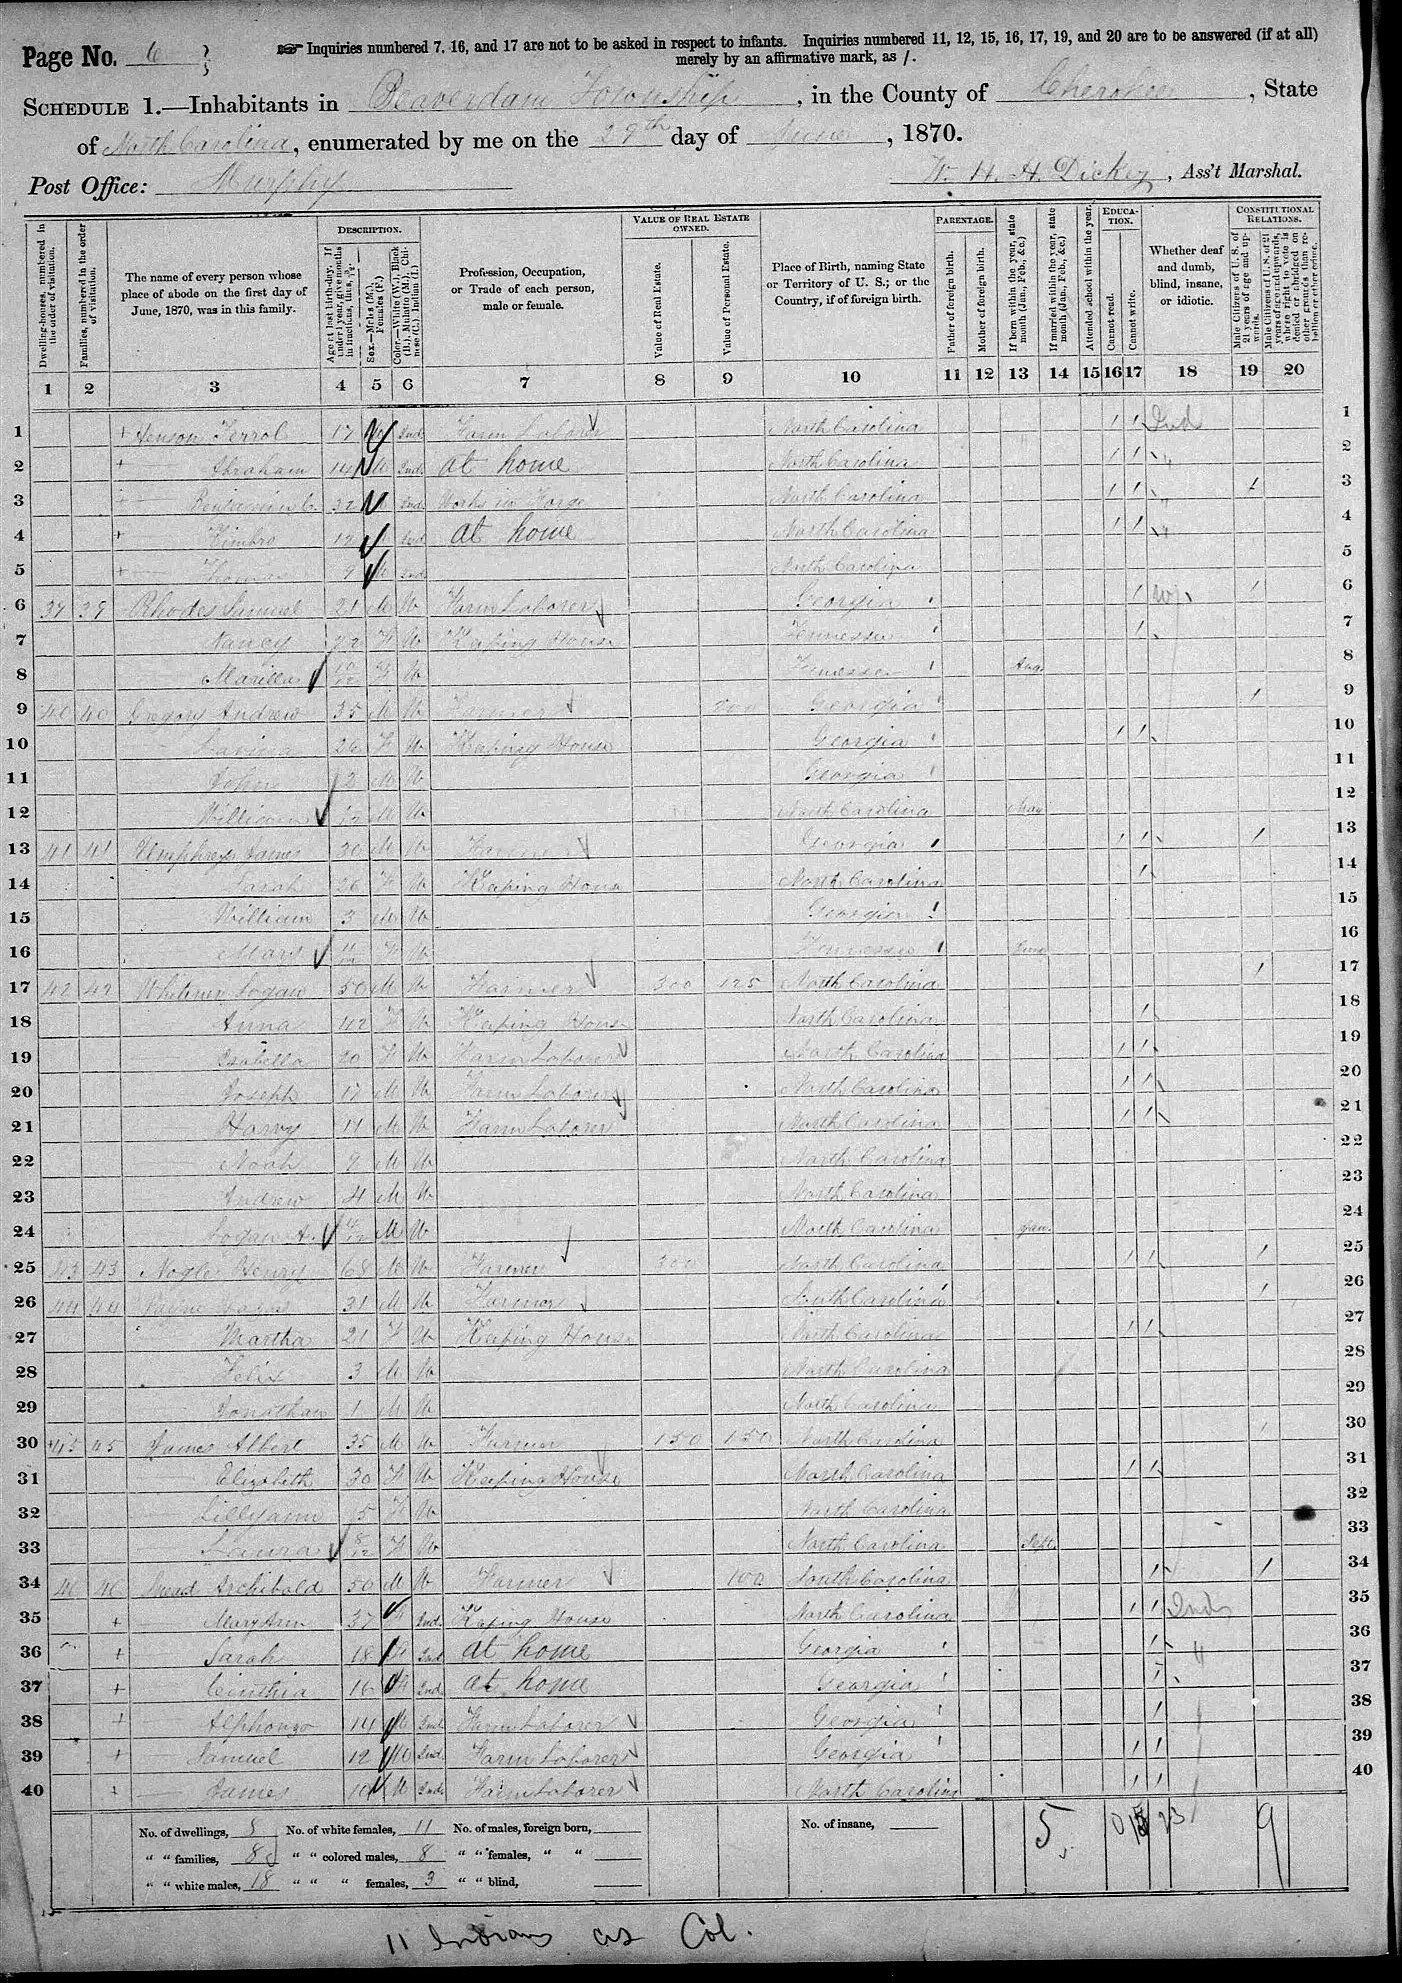 Page No. 6
☞ Inquiries numbered 7, 16, and 17 are not to be asked in respect to infants. Inquiries numbered 11, 12, 15, 16, 17, 19, and 20 are to be answered (if at all)
merely by an affirmative mark, as /.
SCHEDULE 1.—Inhabitants in Beaverdam Township, in the County of Cherokee, State
of North Carolina, enumerated by me on the 29th day of June, 1870.
Post Office: Murphy
W. H. H. Dickey, Ass't Marshal.
Dwelling-houses, numbered in the order of visitation.
Families, numbered in the order of visitation.
The name of every person whose place of abode on the first day of June, 1870, was in this family.
DESCRIPTION.
Age at last birth-day. If under 1 year, give months in fractions, thus, 3/12.
Sex.—Males (M.), Females (F.)
Color.—White (W.), Black (B.), Mulatto (M.), Chinese (C.), Indian (I.)
Profession, Occupation, or Trade of each person, male or female.
VALUE OF REAL ESTATE OWNED.
Value of Real Estate.
Value of Personal Estate.
Place of Birth, naming State or Territory of U. S.; or the Country, if of foreign birth.
PARENTAGE.
Father of foreign birth.
Mother of foreign birth.
If born within the year, state month (Jan., Feb., &c.)
If married within the year, state month (Jan., Feb., &c.)
Attended school within the year.
EDUCATION.
Cannot read.
Cannot write.
Whether deaf and dumb, blind, insane, or idiotic.
CONSTITUTIONAL RELATIONS.
Male Citizens of U. S. of 21 years of age and upwards.
Male Citizens of U. S. of 21 years of age and upwards, whose right to vote is denied or abridged on other grounds than rebellion or other crime.
1 2 3 4 5 6 7 8 9 10 11 12 13 14 15 16 17 18 19 20
1 + Henson 17 Ind Farm Laborer North Carolina / / Ind 1
2 + Abraham 14 M Ind. at home North Carolina / / " 2
3 + Benjamin C. 32 Ind. Works in Forge North Carolina / / " / 3
4 + Kimbro 12 Ind at home North Carolina / / " 4
5 + 9 M Ind North Carolina 5
6 39 39 Rhodes Samuel 21 M W Farm Laborer Georgia / / 6
7 Nancy 22 F W Keeping House Tennessee / 7
8 10/12 F W Tennessee Aug 8
9 40 40 Gregory Andrew 35 M W Farmer 200 Georgia / 9
10 26 F W Keeping House Georgia / / 10
11 John 2 M W Georgia 11
12 William M W North Carolina May 12
13 41 41 Humphreys James 30 M W Farmer Georgia / / / 13
14 Sarah 26 F W Keeping House North Carolina / 14
15 William 3 M W Georgia 15
16 11/12 F W Tennessee 16
17 42 42 Whitener Logan 50 M W Farmer 300 125 North Carolina / 17
18 Anna 42 F W Keeping House North Carolina / 18
19 Isabella 20 F W Farm Laborer North Carolina / / 19
20 Joseph 17 M W Farm Laborer North Carolina / / 20
21 Harvy 11 M W Farm Laborer North Carolina / / 21
22 Noah 9 M W North Carolina 22
23 Andrew 4 M W North Carolina 23
24 Logan A. M W North Carolina Jan. 24
25 43 43 Nogle Henry 68 M W Farmer 300 North Carolina / / / 25
26 44 44 Payne 31 M W Farmer South Carolina / 26
27 Martha 21 F W Keeping House North Carolina / / 27
28 Felix 3 M W North Carolina 28
29 Jonathan 1 M W North Carolina 29
30 45 45 James Albert 35 M W Farmer 150 150 North Carolina / 30
31 Elizabeth 30 F W Keeping House North Carolina / / 31
32 Lillyann 5 F W North Carolina 32
33 Laura 8/12 F W North Carolina Sept. 33
34 46 46 Archibald 50 M W Farmer 100 South Carolina / / 34
35 + Mary Ann 37 F Ind. Keeping House North Carolina / / Ind 35
36 + Sarah 18 F Ind at home Georgia / " 36
37 + Cinthia 16 F Ind at home Georgia / 37
38 + Alphonzo 14 M Ind Farm Laborer Georgia / 38
39 + Samuel 12 M Ind Farm Laborer Georgia / / 39
40 + James 10 M Ind Farm Laborer North Carolina / / 40
No. of dwellings, 8 No. of white females, 11 No. of males, foreign born, No. of insane, 5 23 9
" " families, 8 " " colored males, 8 " " females, " "
" " white males, 18 " " " females, 3 " " blind,
11 Indians as Col.